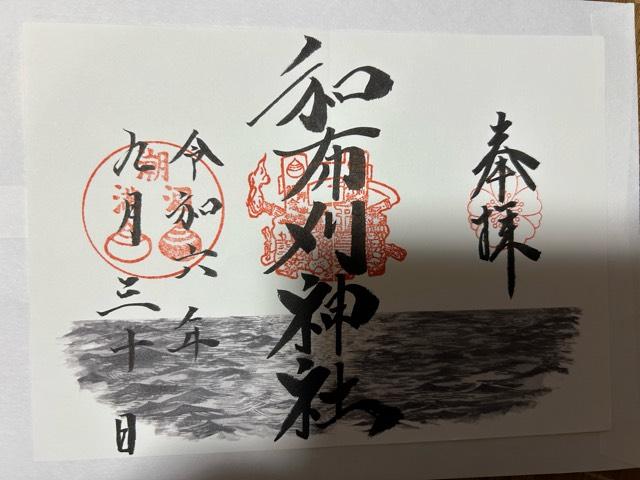 奉拝
和布刈神社
令和六年
九月三十日